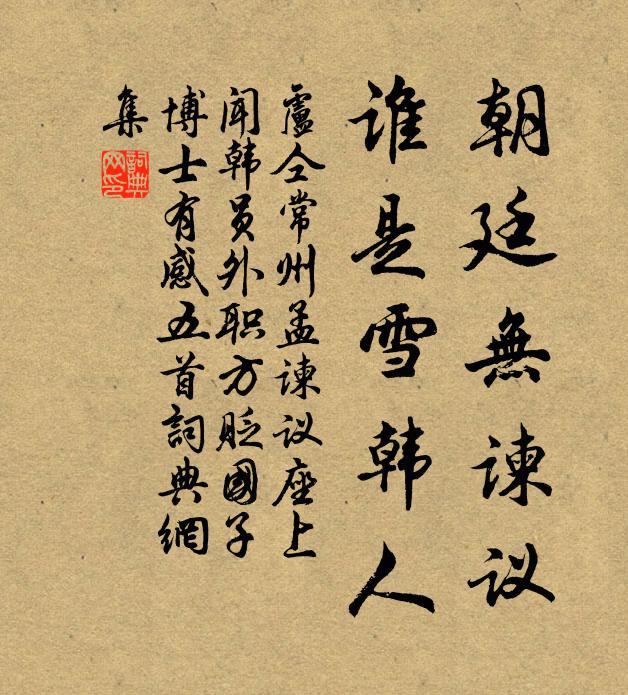 朝廷無諫议
谁是雪韩人
盧仝常州孟谏议座上
闻韩员外职方贬國子
博士有感五首詞典網
集
詞典网印